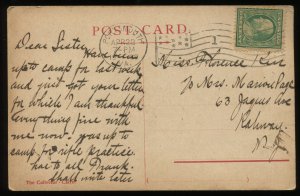 POST CARD
APR 29
PM
1
Dear Sister
Have been
up to camp for last week
and just got your letter
for which I am thankful
Everything fine with
me now. was up to
camp for rifle practise
has to all. Frank
shall write later
Miss Florence
To Mrs. Marion Page
63 Jaques Ave
Rahway
N.J.
The